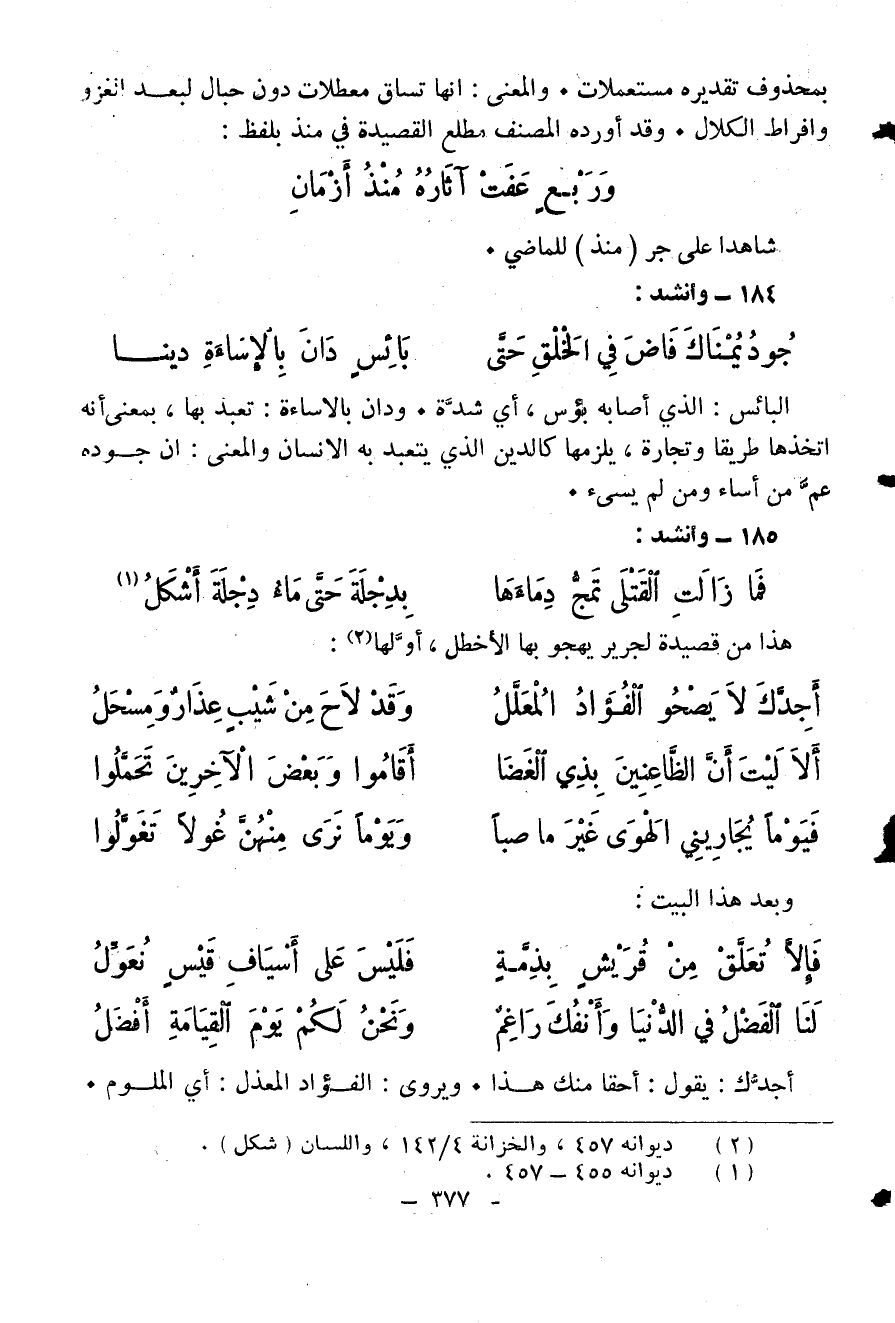 بمحذوف تقديره مستعملات • والمعنى : انها تساق معطلات دون حبال لبعـــد الغزو
وافراط الكلال • وقد أورده المصنف مطلع القصيدة في منذ بلفظ :
وَرَبْـعٍ عَفَتْ آثَارُهُ مُنْذُ أَزْمَانِ
شاهدا على جر ( منذ ) للماضي •
١٨٤ ــ وأنشد :
جُودُ يُمْنَاكَ فَاضَ فِي الْخَلْقِ حَتَّى بَائِسٍ دَانَ بِالإِسَاءَةِ دينـــــا
البائس : الذي أصابه بؤس ، أي شدَّة • ودان بالاساءة : تعبد بها ، بمعنى أنه
اتخذها طريقا وتجارة ، يلزمها كالدين الذي يتعبد به الانسان والمعنى : ان جــوده
عمَّ من أساء ومن لم يسىء •
١٨٥ ــ وأنشد :
فَمَا زَالَتِ ٱلْقَتْلَى تَمُجُّ دِمَاءَهَا بِدِجْلَةَ حَتَّى مَاءُ دِجْلَةَ أَشْكَلُ (١)
هذا من قصيدة لجرير يهجو بها الأخطل ، أوَّلها(٢) :
أَجِدَّكَ لاَ يَصْحُو ٱلْفُـؤَادُ الْمُعَلَّلُ وَقَدْ لاَحَ مِنْ شَيْبٍ عِذَارٌ وَمِسْحَلُ
أَلاَ لَيْتَ أَنَّ الظَّاعِنِينَ بِذِي ٱلْغَضَا أَقَامُوا وَبَعْضَ الْآخِرِينَ تَحَمَّلُوا
فَيَوْماً يُجَارِينِي الْهَوَى غَيْرَ ما صباً وَيَوْماً نَرَى مِنْهُنَّ غُولاً تَغَوَّلُوا
وبعد هذا البيت :
فَإِلاَّ تُعَلَّقْ مِنْ قُرَيْشٍ بِذِمَّـةٍ فَلَيْسَ عَلَى أَسْيَافِ قَيْسٍ مُعَوَّلُ
لَنَا ٱلْفَضْلُ فِي الدُّنْيَا وَأَنْفُكَ رَاغِمٌ وَنَحْنُ لَكُمْ يَوْمَ ٱلْقِيَامَةِ أَفْضَلُ
أجدَّك : يقول : أحقا منك هــذا • ويروى : الفــؤاد المعذل : أي الملــوم •
( ٢ ) ديوانه ٤٥٧ ، والخزانة ١٤٢/٤ ، واللسان ( شكل ) .
( ١ ) ديوانه ٤٥٥ ــ ٤٥٧ .
- ٣٧٧ ــ